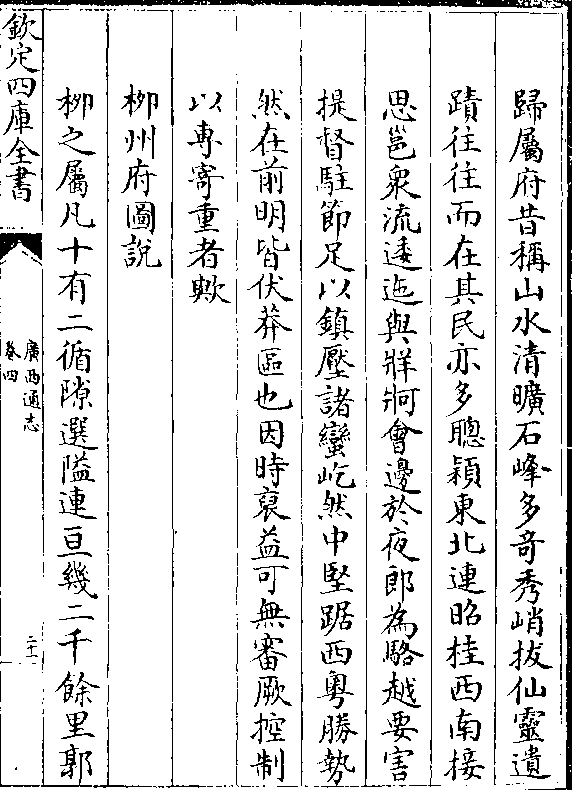 歸屬府昔稱山水清曠石峰多奇秀峭拔仙靈遺
蹟往往而在其民亦多聰穎東北連昭桂西南接
思邕衆流逶迤與牂牁會邊於夜郎為駱越要害
提督駐節足以鎮壓諸蠻屹然中堅踞西粤勝勢
然在前明皆伏莽區也因時裒益可無審厥控制
以專寄重者歟
柳州府圖說
柳之屬凡十有二循隙選隘連亘幾二千餘里郭
欽定四庫全書
廣西通志
卷四
二十一